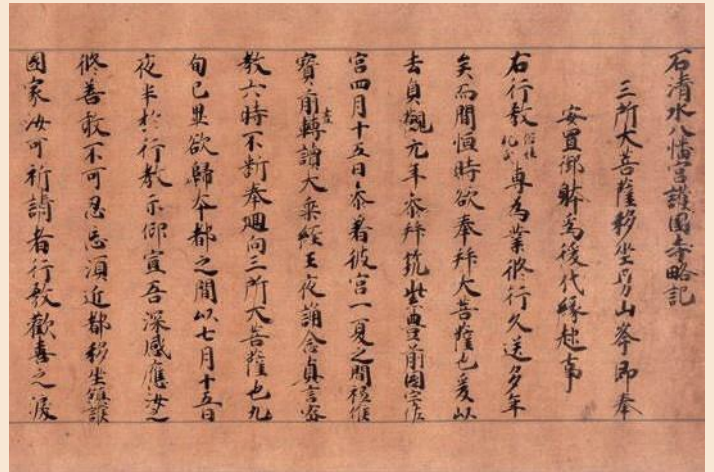 石清水八幡宮護国寺略記
三所大菩薩移坐男山峯即奉
安置御躰為後代縁起事
右行教俗姓紀氏専為業修行久送多年
矣而間恒時欲奉拝大菩薩也爰以
去貞觀元年参拝筑紫豊前国宇佐
宮四月十五日参着彼宮一夏之間祗候
寳前晝轉讀大乗経王夜誦念真言密
教六時不断奉廻向三所大菩薩也九
旬已畢欲歸本都之間以七月十五日
夜半於行教示仰宣吾深感應汝之
修善敢不可忍忘須近都移坐鎮護
國家汝可祈請者行教歓喜之涙